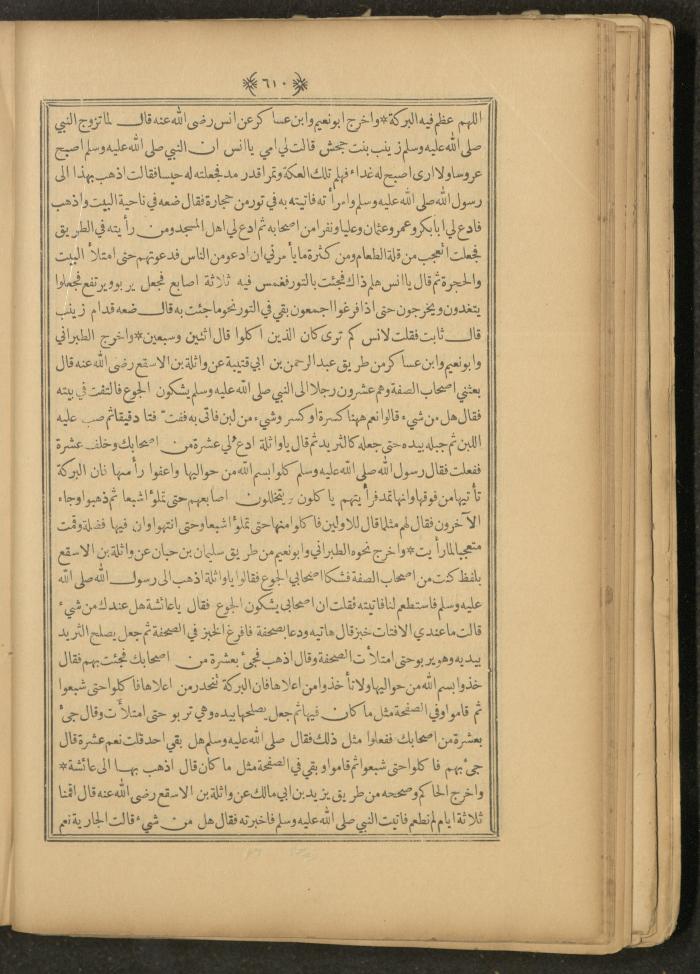 ٦١٠
اللهم عظم فيه البركة*واخرج ابونعيم وابن عساكر عن انس رضى الله عنه قال لما تزوج النبي
صلى الله عليه وسلم زينب بنت جحش قالت لي امي ياانس ان النبي صلى الله عليه وسلم اصبح
عروسا ولا ارى اصبح له غداء فهلم تلك العكة وتمرا قدر مد فجعلته له حيسا فقالت اذهب بهذا الى
رسول الله صلى الله عليه وسلم وامرأته فاتيته به في تور من حجارة فقال ضعه في ناحية البيت واذهب
فادع لي ابابكر وعمر وعثمان وعليا ونفرا من اصحابه ثم ادع لي اهل المسجد ومن رأيته في الطريق
فجعلت اتعجب من قلة الطعام ومن كثرة ما يأمرني ان ادعو من الناس فدعوتهم حتى امتلأ البيت
والحجرة ثم قال ياانس هلم ذاك فجئت بالتور فغمس فيه ثلاثة اصابع فجعل يربو ويرتفع فجعلوا
يتغدون ويخرجون حتى اذا فرغوا اجمعون بقي في التور نحو ما جئت به قال ضعه قدام زينب
قال ثابت فقلت لانس كم ترى كان الذين اكلوا قال اثنين وسبعين*واخرج الطبراني
وابونعيم وابن عساكر من طريق عبد الرحمن بن ابي قتيبة عن واثلة بن الاسقع رضى الله عنه قال
بعثني اصحاب الصفة وهم عشرون رجلا الى النبي صلى الله عليه وسلم يشكون الجوع فالتفت في بيته
فقال هل من شيء قالوا نعم ههنا كسرة او كسر وشيء من لبن فاتى به ففت فتا دقيقا ثم صب عليه
اللبن ثم جبله بيده حتى جعله كالثريد ثم قال ياواثلة ادع لي عشرة من اصحابك وخلف عشرة
ففعلت فقال رسول الله صلى الله عليه وسلم كلوا بسم الله من حواليها واعفوا رأسها فان البركة
تأتيها من فوقها وانها تمد فرأيتهم ياكلون ويتخللون اصابعهم حتى تملؤا شبعا ثم ذهبوا وجاء
الآخرون فقال لهم مثل ما قال للاولين فاكلوا منها حتى تملؤا شبعا وحتى انتهوا وان فيها فضلة وقمت
متعجبا لما رأيت*واخرج نحوه الطبراني وابونعيم من طريق سليمان بن حبان عن واثلة بن الاسقع
بلفظ كنت من اصحاب الصفة فشكا اصحابي الجوع فقالوا ياواثلة اذهب الى رسول الله صلى الله
عليه وسلم فاستطعم لنا فاتيته فقلت ان اصحابي يشكون الجوع فقال ياعائشة هل عندك من شيء
قالت ما عندي الا فتات خبز قال هاتيه ودعا بصحفة فافرغ الخبز في الصحفة ثم جعل يصلح الثريد
بيديه وهو يربو حتى امتلأت الصحفة وقال اذهب فجئ بعشرة من اصحابك فجئت بهم فقال
خذوا بسم الله من حواليها ولا تأخذوا من اعلاها فان البركة تنحدر من اعلاها فاكلوا حتى شبعوا
ثم قاموا وفي الصفحة مثل ما كان فيها ثم جعل يصلحها بيده وهي تربو حتى امتلأت وقال جئ
بعشرة من اصحابك ففعلوا مثل ذلك فقال صلى الله عليه وسلم هل بقي احد قلت نعم عشرة قال
جئ بهم فاكلوا حتى شبعوا ثم قاموا وبقي في الصفحة مثل ما كان قال اذهب بها الى عائشة*
واخرج الحاكم وصححه من طريق يزيد بن ابي مالك عن واثلة بن الاسقع رضى الله عنه قال اقمنا
ثلاثة ايام لم نطعم فاتيت النبي صلى الله عليه وسلم فاخبرته فقال هل من شيء قالت الجارية نعم